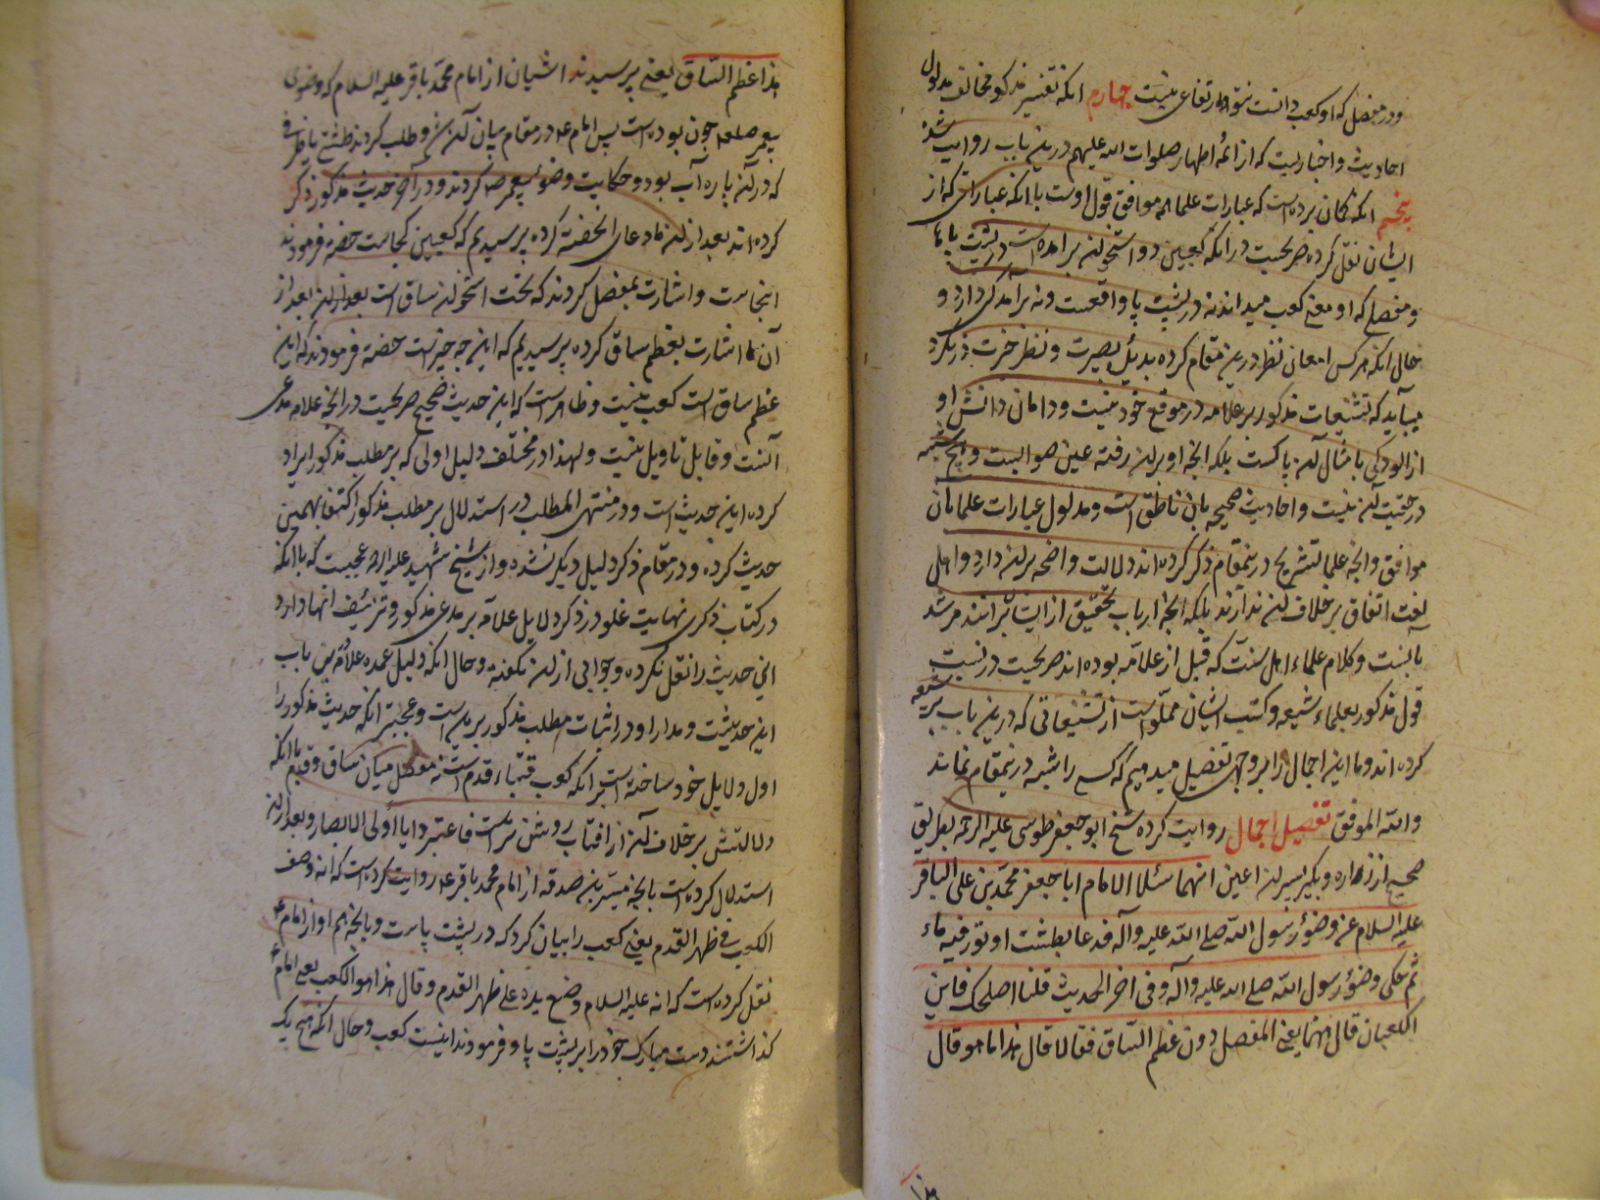 و در مفصل که او کعب دانسته نتو و ارتفاعی نیست چهارم آنکه تفسیر مذکور مخالف مدلول
احادیث و اخباریست که از ائمه اطهار صلوات الله علیهم درین باب روایت شده
پنجم آنکه گمان برده است که عبارات علما همه موافق قول اوست با آنکه عباراتی که از
ایشان نقل کرده صریحست در آنکه کعبین دو استخوان برآمده است در پشت پاها
و مفصلی که او معنی کعب میداند نه در پشت پا واقعست و نه برآمدگی دارد و
حال آنکه هر کس امعان نظر درین مقام کرده بدیده بصیرت و نظر خبرت در نگرد
میآید که تشنیعات مذکور بر علامه در موقع خود نیست و دامان دانش او
از آلودگی بامثال آن پاکست بلکه آنچه او بر آن رفته عین صوابست و هیچ شبهه
در حقیت آن نیست و احادیث صحیحه بان ناطق است و مدلول عبارات علما بان
موافق و آنچه علما تشریح درینمقام ذکر کرده اند دلالت واضحه بر آن دارد و اهل
لغت اتفاق بر خلاف آن ندارند بلکه آنچه ارباب تحقیق از ایشان برانند مرشد
بآنست و کلام علماء اهل سنت که قبل از علامه بوده اند صریحست در نسبت
قول مذکور بعلماء شیعه و کتب ایشان مملو است از تشنیعاتی که درین باب بر شیعه
کرده اند و ما این اجمال را بر وجهی تفصیل میدهیم که کسی را شبهه درینمقام نماند
والله الموفق تفصیل اجمال روایت کرده شیخ ابو جعفر طوسی علیه الرحمه بطریق
صحیح از زراره و بکیر پسران اعین انهما سئلا الامام ابا جعفر محمد بن علی الباقر
علیه السلام عن وضوء رسول الله صلی الله علیه و آله فدعا بطشت او تور فیه ماء
ثم حکی وضوء رسول الله صلی الله علیه و آله و فی اخر الحدیث قلنا اصلحک الله فاین
الکعبان قال ههنا یعنی المفصل دون عظم الساق فقالا هذا ما هو قال
هذا
هذا عظم الساق یعنی پرسیدند ایشان از امام محمد باقر علیه السلام که وضوی
پیغمبر صلعم چون بوده است پس امام ع در مقام بیان آن شده و طلب کردند طشتی یا ظرفی
که در آن پاره آب بود و حکایت وضوء پیغمبر ص کردند و در آخر حدیث مذکور ذکر
کرده اند بعد از آن ما دعای آنحضرت کرده پرسیدیم که کعبین کجاست حضرت فرمودند
اینجاست و اشارت بمفصل کردند که تحت استخوان ساق است بعد از آن
آن ما اشارت بعظم ساق کرده پرسیدیم که این چه چیزست حضرت فرمودند که این
عظم ساق است کعب نیست و ظاهر است که این حدیث صحیح صریحست در آنچه علامه مدعی
آنست و قابل تاویل نیست و لهذا در مختلف دلیل اولی که بر مطلب مذکور ایراد
کرده این حدیث است و در منتهی المطلب در استدلال بر مطلب مذکور اکتفا بهمین
حدیث کرده و در مقام ذکر دلیل دیگر نشده و از شیخ شهید علیه الرحمه عجبست که با آنکه
در کتاب ذکری نهایت غلو در ذکر دلایل علامه بر مدعی مذکور و تزئیف آنها دارد
این حدیث را نقل نکرده و جوابی از آن نگفته و حال آنکه دلیل عمده علامه درین باب
این حدیثست و مدار او در اثبات مطلب مذکور برینست و عجبتر آنکه حدیث مذکور را
اول دلایل خود ساخته است بر آنکه کعب قبتاء قدم است نه مفصل میان ساق و قدم با آنکه
دلالتش بر خلاف آن از آفتاب روشن تر است فاعتبروا یا اولی الابصار و بعد از آن
استدلال کرده است بآنچه میسر بن صدقه از امام محمد باقر ع روایت کرده است که انه وصف
الکعب فی ظهر القدم یعنی کعب را بیان کرد که در پشت پاست و بآنچه هم او از امام ع
نقل کرده است که انه علیه السلام وضع یده علی ظهر القدم و قال هذا هو الکعب یعنی امام ع
گذاشتند دست مبارک خود را بر پشت پا و فرمودند اینست کعب و حال آنکه هیچ یک